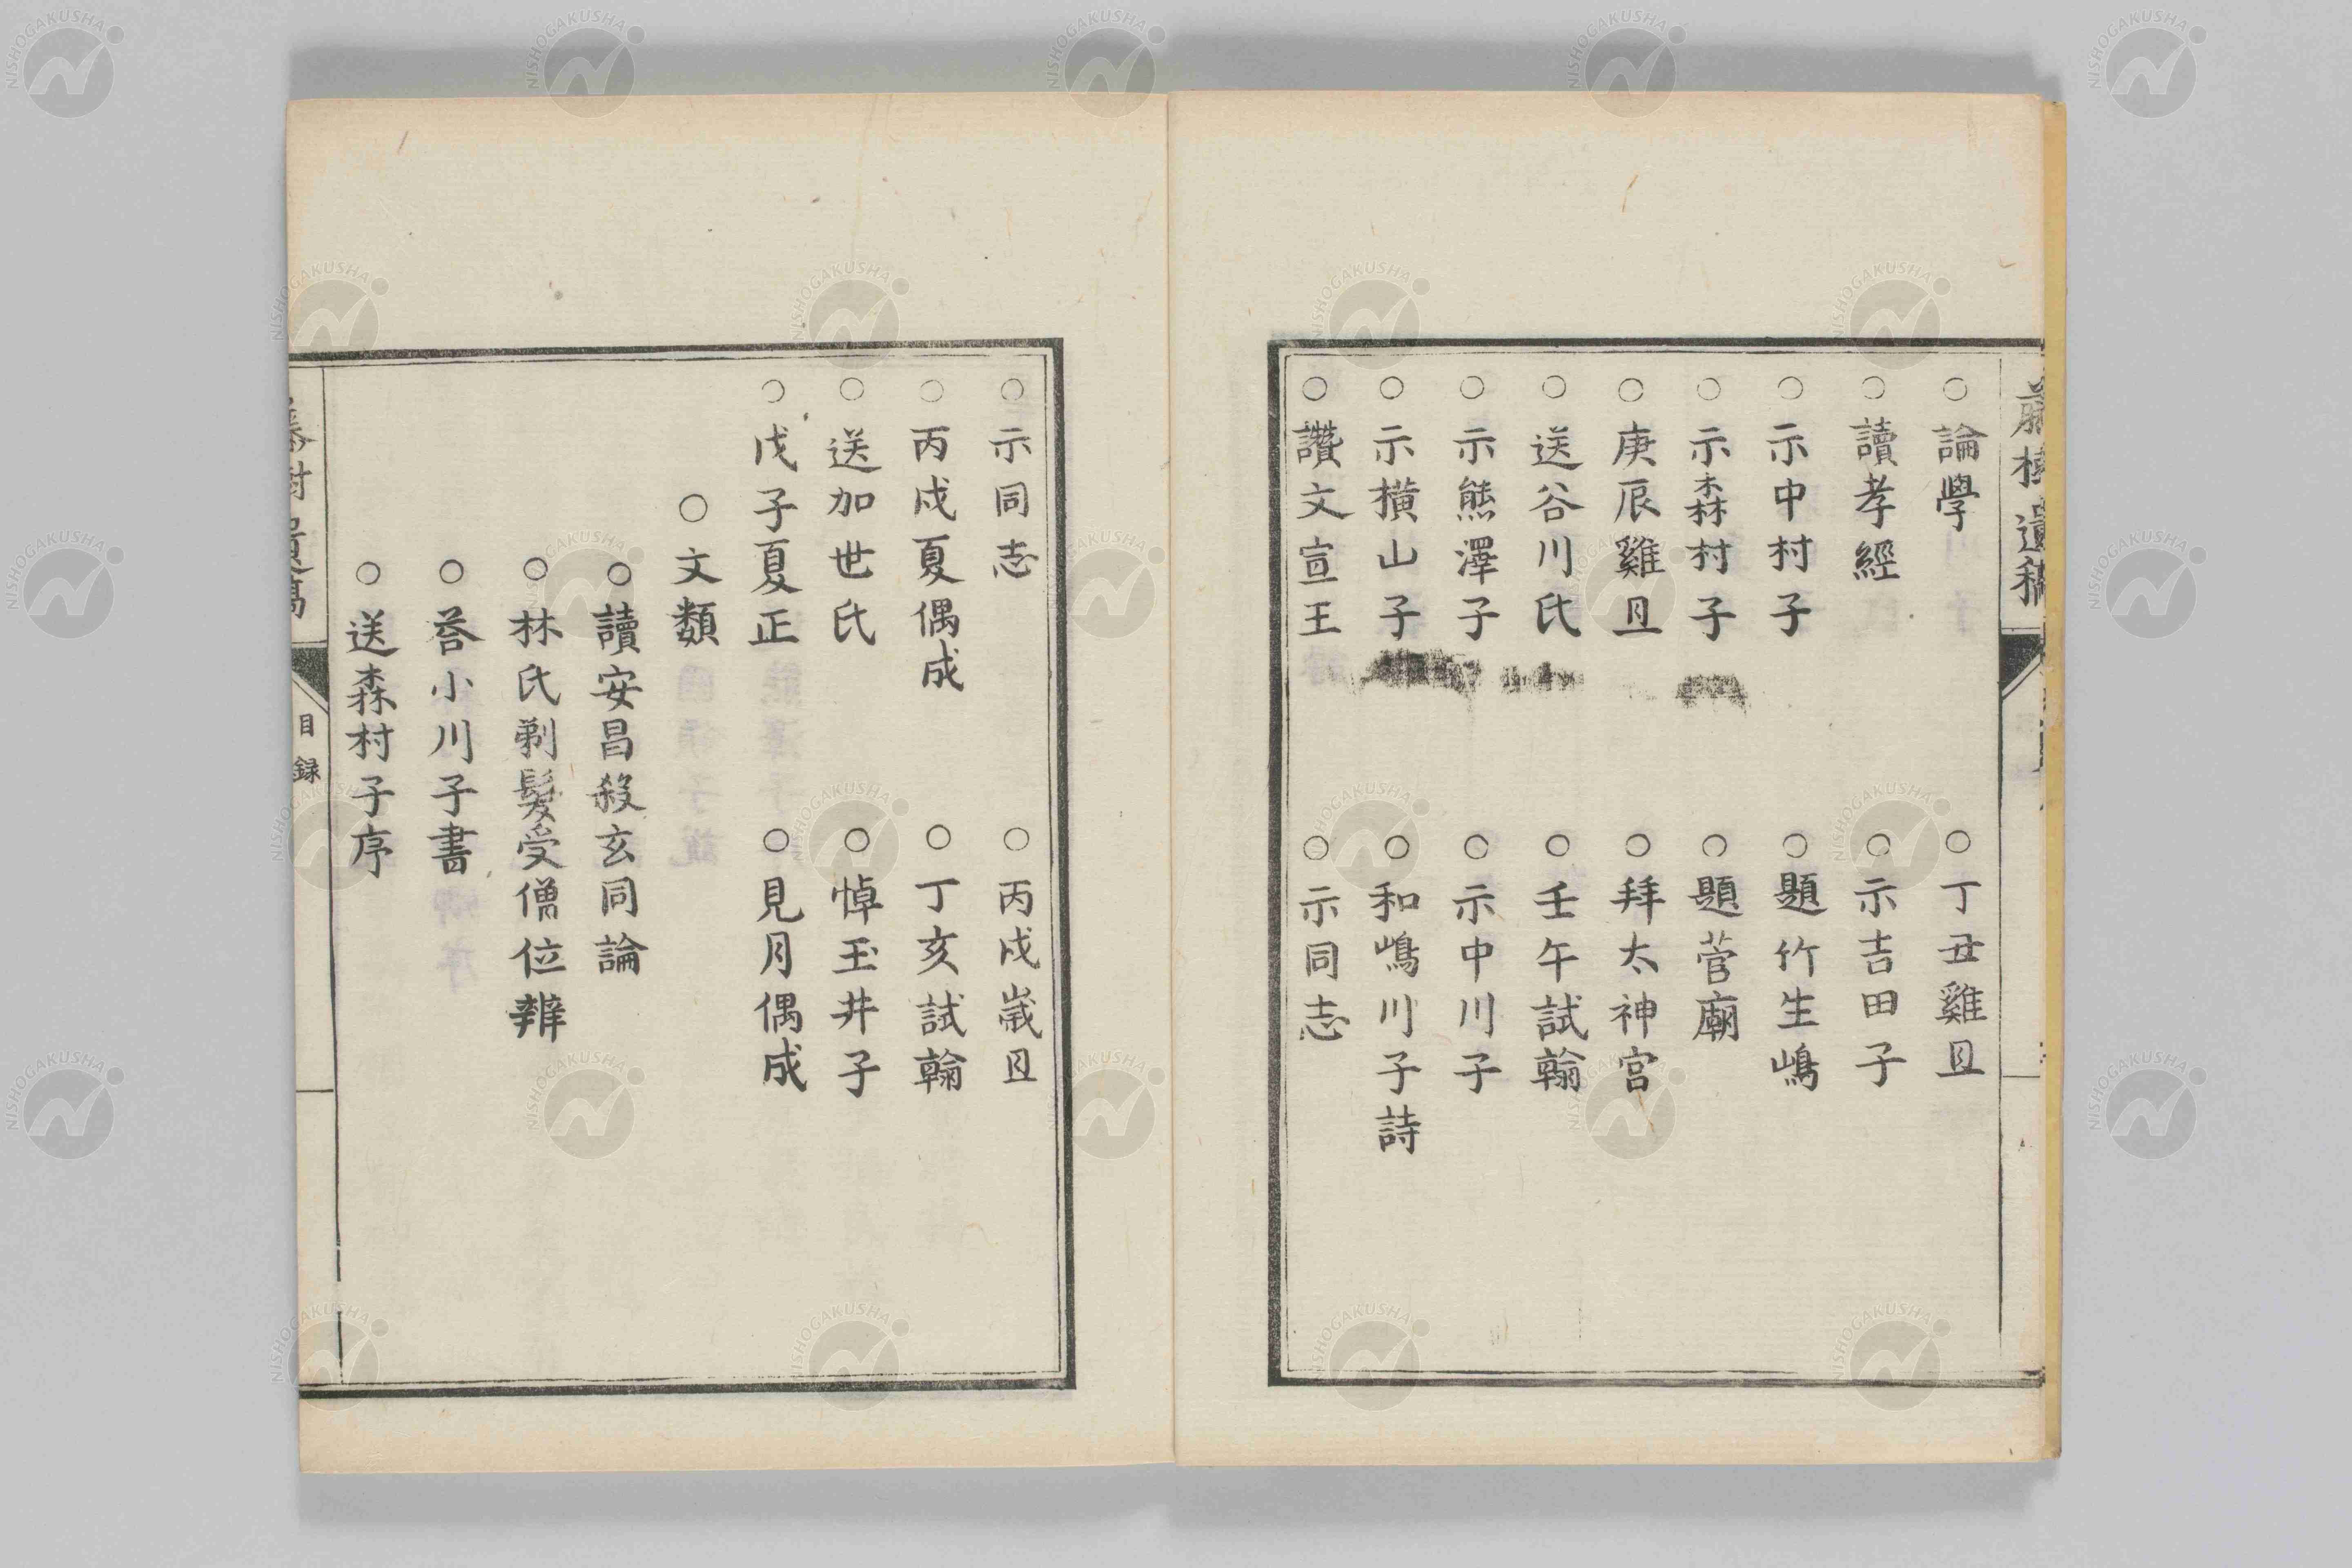 藤樹遺稿
○論學 ○丁丑雞旦
○讀孝經 ○示吉田子
○示中村子 ○題竹生嶋
○示森村子 ○題菅廟
○庚辰雞旦 ○拜太神宮
○送谷川氏 ○壬午試翰
○示熊澤子 ○示中川子
○示橫山子 ○和嶋川子詩
○讚文宣王 ○示同志
○示同志 ○丙戌歲旦
○丙戌夏偶成 ○丁亥試翰
○送加世氏 ○悼玉井子
○戊子夏正 ○見月偶成
○文類
○讀安昌殺玄同論
○林氏剃髮受僧位辨
○荅小川子書
○送森村子序
藤樹遺稿 目録
NISHOGAKUSHA